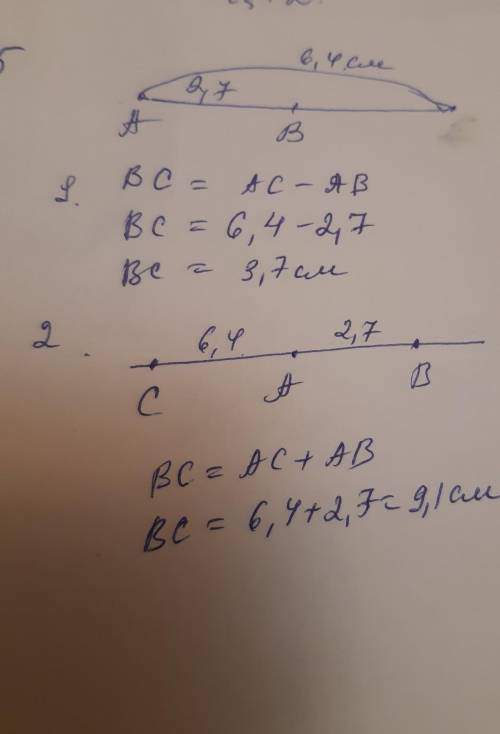 5
6,4 см
2,7
A B
1. BC = AC - AB
BC = 6,4 - 2,7
BC = 3,7 см
2.
6,4 2,7
C A B
BC = AC + AB
BC = 6,4 + 2,7 = 9,1 см